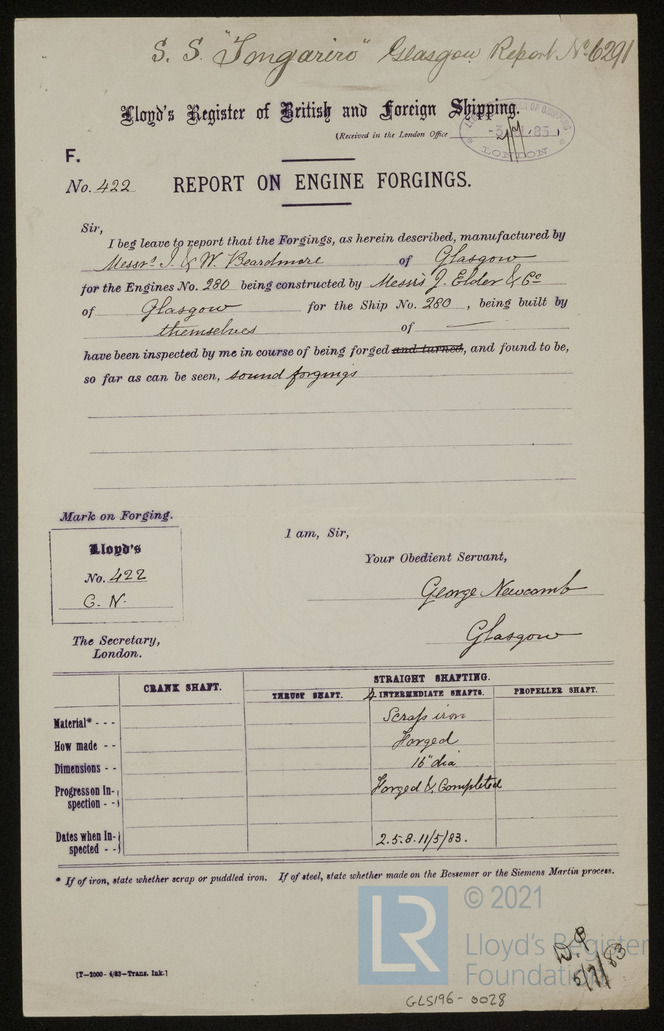 S. S. "Tongariro" Glasgow Report No 6291
Lloyd's Register of British and Foreign Shipping.
(Received in the London Office
OF SHIPPING
83
LONDON
F.
No. 422 REPORT ON ENGINE FORGINGS.
Sir,
I beg leave to report that the Forgings, as herein described, manufactured by
Messrs J. & W. Beardmore of Glasgow
for the Engines No. 280 being constructed by Messrs J. Elder & Co
of Glasgow for the Ship No. 280, being built by
themselves of —
have been inspected by me in course of being forged and turned, and found to be,
so far as can be seen, sound forgings
Mark on Forging.
Lloyd's
No. 422
G. N.
I am, Sir,
Your Obedient Servant,
George Newcomb
Glasgow
The Secretary,
London.
STRAIGHT SHAFTING.
CRANK SHAFT. THRUST SHAFT. 2 INTERMEDIATE SHAFTS. PROPELLER SHAFT.
Material* - - - Scrap iron
How made - - Forged
Dimensions - - 16" dia
Progress on In-spection - - Forged & Completed
Dates when In-spected - - 2.5.8.11/5/83.
* If of iron, state whether scrap or puddled iron. If of steel, state whether made on the Bessemer or the Siemens Martin process.
[T—2000—4/83—Trans. Ink.]
5/7/83
GLS196-0028
LR
© 2021
Lloyd's Register
Foundation